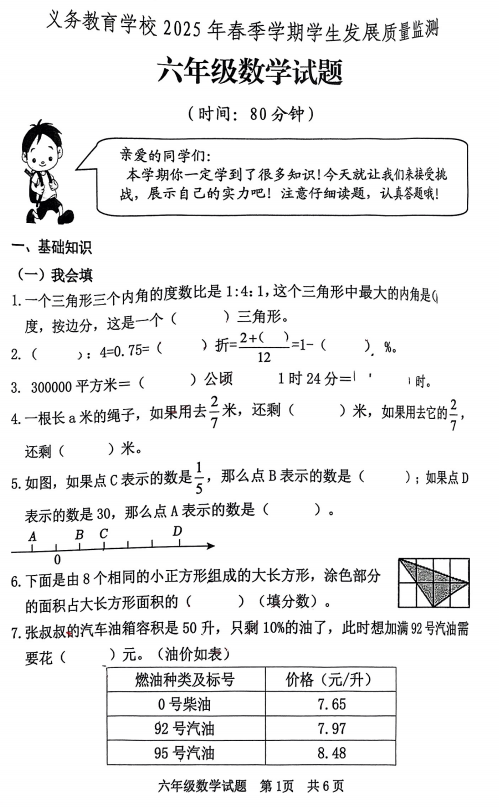 义务教育学校 2025 年春季学期学生发展质量监测
六年级数学试题
(时间: 80 分钟)
亲爱的同学们:
本学期你一定学到了很多知识!今天就让我们来接受挑
战, 展示自己的实力吧! 注意仔细读题, 认真答题哦!
一、基础知识
(一) 我会填
1.一个三角形三个内角的度数比是 1:4:1,这个三角形中最大的内角是(
度, 按边分, 这是一个 ( ) 三角形。
2. ( ) : 4=0.75= ( ) 折= 2+( )/12 =1- ( ) %。
3. 300000 平方米= ( ) 公顷 1 时 24 分=( ) 时。
4.一根长 a 米的绳子, 如果用去 2/7 米, 还剩 ( ) 米, 如果用去它的 2/7 ,
还剩 ( ) 米。
5.如图, 如果点 C 表示的数是 1/5 , 那么点 B 表示的数是 ( ) ; 如果点 D
表示的数是 30, 那么点 A 表示的数是 ( ) 。
A B C D
0
6.下面是由 8 个相同的小正方形组成的大长方形, 涂色部分
的面积占大长方形面积的 ( ) (填分数) 。
7.张叔叔的汽车油箱容积是 50 升, 只剩 10%的油了, 此时想加满 92 号汽油需
要花 ( ) 元。(油价如表)
燃油种类及标号 价格 (元/升)
0 号柴油 7.65
92 号汽油 7.97
95 号汽油 8.48
六年级数学试题 第 1页 共 6 页